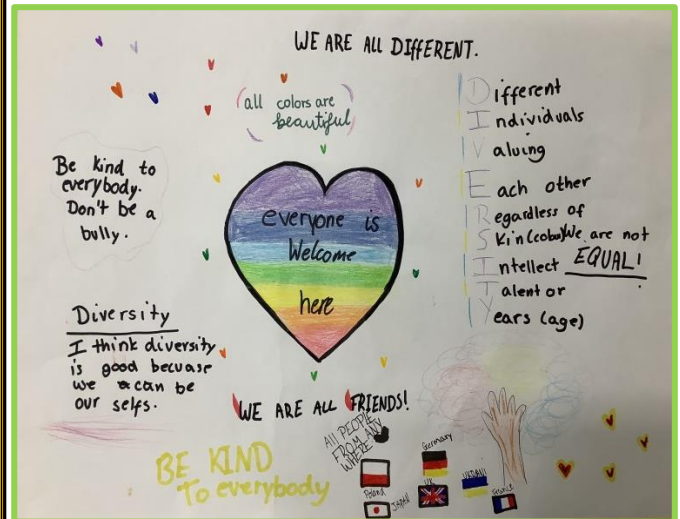 WE ARE ALL DIFFERENT.
all colors are
beautiful
Be kind to
everybody.
Don't be a
bully.
everyone is
Welcome
here
Different
Individuals
Valuing
Each other
Regardless of
Skin (colour) We are not
Intellect EQUAL!
Talent or
Years (age)
Diversity
I think diversity
is good becuase
we can be
our selfs.
WE ARE ALL FRIENDS!
All PEOPLE
FROM ANY
WHERE
BE KIND
To everybody
Germany
Poland
UK
France
JAPAN